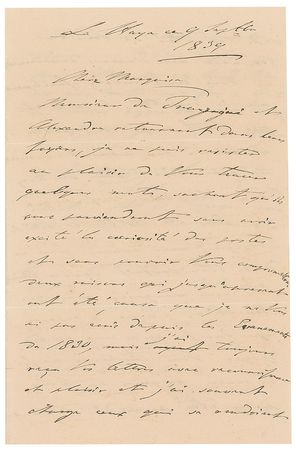 La Haye ce 9 Septbr
1839
Chère Marquise
Monsieur de et
Alexandre retournant dans leurs
foyers, je ne puis résister
au plaisir de Vous tracer
quelques mots, sachant, qu'ils
vous parviendront sans avoir
excité la curiosité des postes
et sans pouvoir Vous compromettre
deux raisons qui jusqu'à présent
ont été cause que je ne Vous
ai pas écris depuis les Evénements
de 1830, mais j'ai toujours
reçu Vos lettres avec reconnaissance
et plaisir et j'ai souvent
chargé ceux qui se rendoient